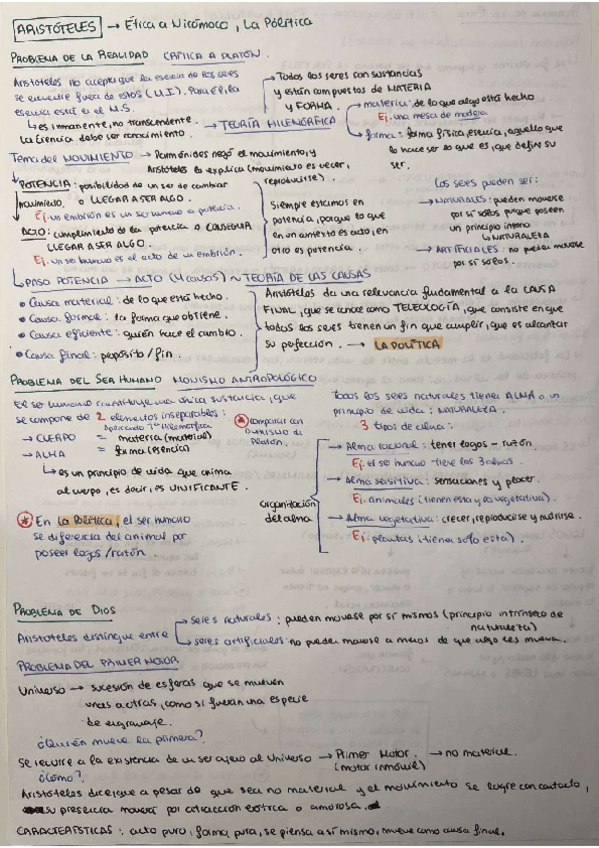 ARISTÓTELES → Ética a Nicómaco, La Política
PROBLEMA DE LA REALIDAD CRÍTICA A PLATÓN.
Aristóteles no acepta que la esencia de los seres
se encuentre fuera de estos (M.I). Para él, la
esencia está en el M.S.
↳ es inmanente, no trascendente. → TEORÍA HILEMÓRFICA
La Esencia debe ser conocimiento
→ Todos los seres son sustancias
y están compuestos de MATERIA
Y FORMA.
→ materia: de lo que algo está hecho
Ej: una mesa de madera
→ forma: forma física, esencia, aquello que
lo hace ser lo que es, que define su
ser.
Tema del MOVIMIENTO → Parménides negó el movimiento, y
Aristóteles lo explica (movimiento es nacer,
reproducirse).
POTENCIA: posibilidad de un ser de cambiar
movimiento. o LLEGAR A SER ALGO.
Ej: un embrión es un ser humano en potencia.
ACTO: cumplimiento de la potencia o CONSEGUIR
LLEGAR A SER ALGO.
Ej: un ser humano es el acto de un embrión.
Siempre estamos en
potencia, porque lo que
en un contexto es acto, en
otro es potencia.
Los seres pueden ser:
→ NATURALES: pueden moverse
por sí solos porque poseen
un principio interno
↳ NATURALEZA
→ ARTIFICIALES: no pueden moverse
por sí solos.
↳ PASO POTENCIA → ACTO (4 causas) ~ TEORÍA DE LAS CAUSAS
• Causa material: de lo que está hecho.
• Causa formal: la forma que obtiene.
• Causa eficiente: quién hace el cambio.
• Causa final: propósito / fin.
Aristóteles da una relevancia fundamental a la CAUSA
FINAL, que se conoce como TELEOLOGÍA, que consiste en que
todos los seres tienen un fin que cumplir, que es alcanzar
su perfección. → LA POLÍTICA
PROBLEMA DEL SER HUMANO MONISMO ANTROPOLÓGICO
El ser humano constituye una única sustancia, que
se compone de 2 elementos inseparables:
→ CUERPO = materia (material)
→ ALMA = forma (esencia)
↳ es un principio de vida que anima
al cuerpo, es decir, es VIVIFICANTE.
* comparar con
DUALISMO de
Platón.
* En La Política, el ser humano
se diferencia del animal por
poseer logos / razón.
Todos los seres naturales tienen ALMA o un
principio de vida: NATURALEZA.
3 tipos de alma:
Organización
del alma
→ Alma racional: tener logos – razón.
Ej: el ser humano tiene las 3 almas.
→ Alma sensitiva: sensaciones y placer.
Ej: animales (tienen esta y la vegetativa).
→ Alma vegetativa: crecer, reproducirse y nutrirse.
Ej: plantas (tiene solo esta).
PROBLEMA DE DIOS
Aristóteles distingue entre
→ seres naturales: pueden moverse por sí mismos (principio intrínseco de
naturaleza)
→ seres artificiales: no pueden moverse a menos de que algo les mueva.
PROBLEMA DEL PRIMER MOTOR
Universo → sucesión de esferas que se mueven
unas a otras, como si fueran una especie
de engranaje.
¿Quién mueve la primera?
Se recurre a la existencia de un ser ajeno al Universo → Primer Motor. → no material.
(motor inmóvil)
¿Cómo?
Aristóteles dice que a pesar de que sea no material y el movimiento se logre con contacto,
su presencia moverá por atracción erótica o amorosa.
CARACTERÍSTICAS: acto puro, forma pura, se piensa a sí mismo, mueve como causa final.